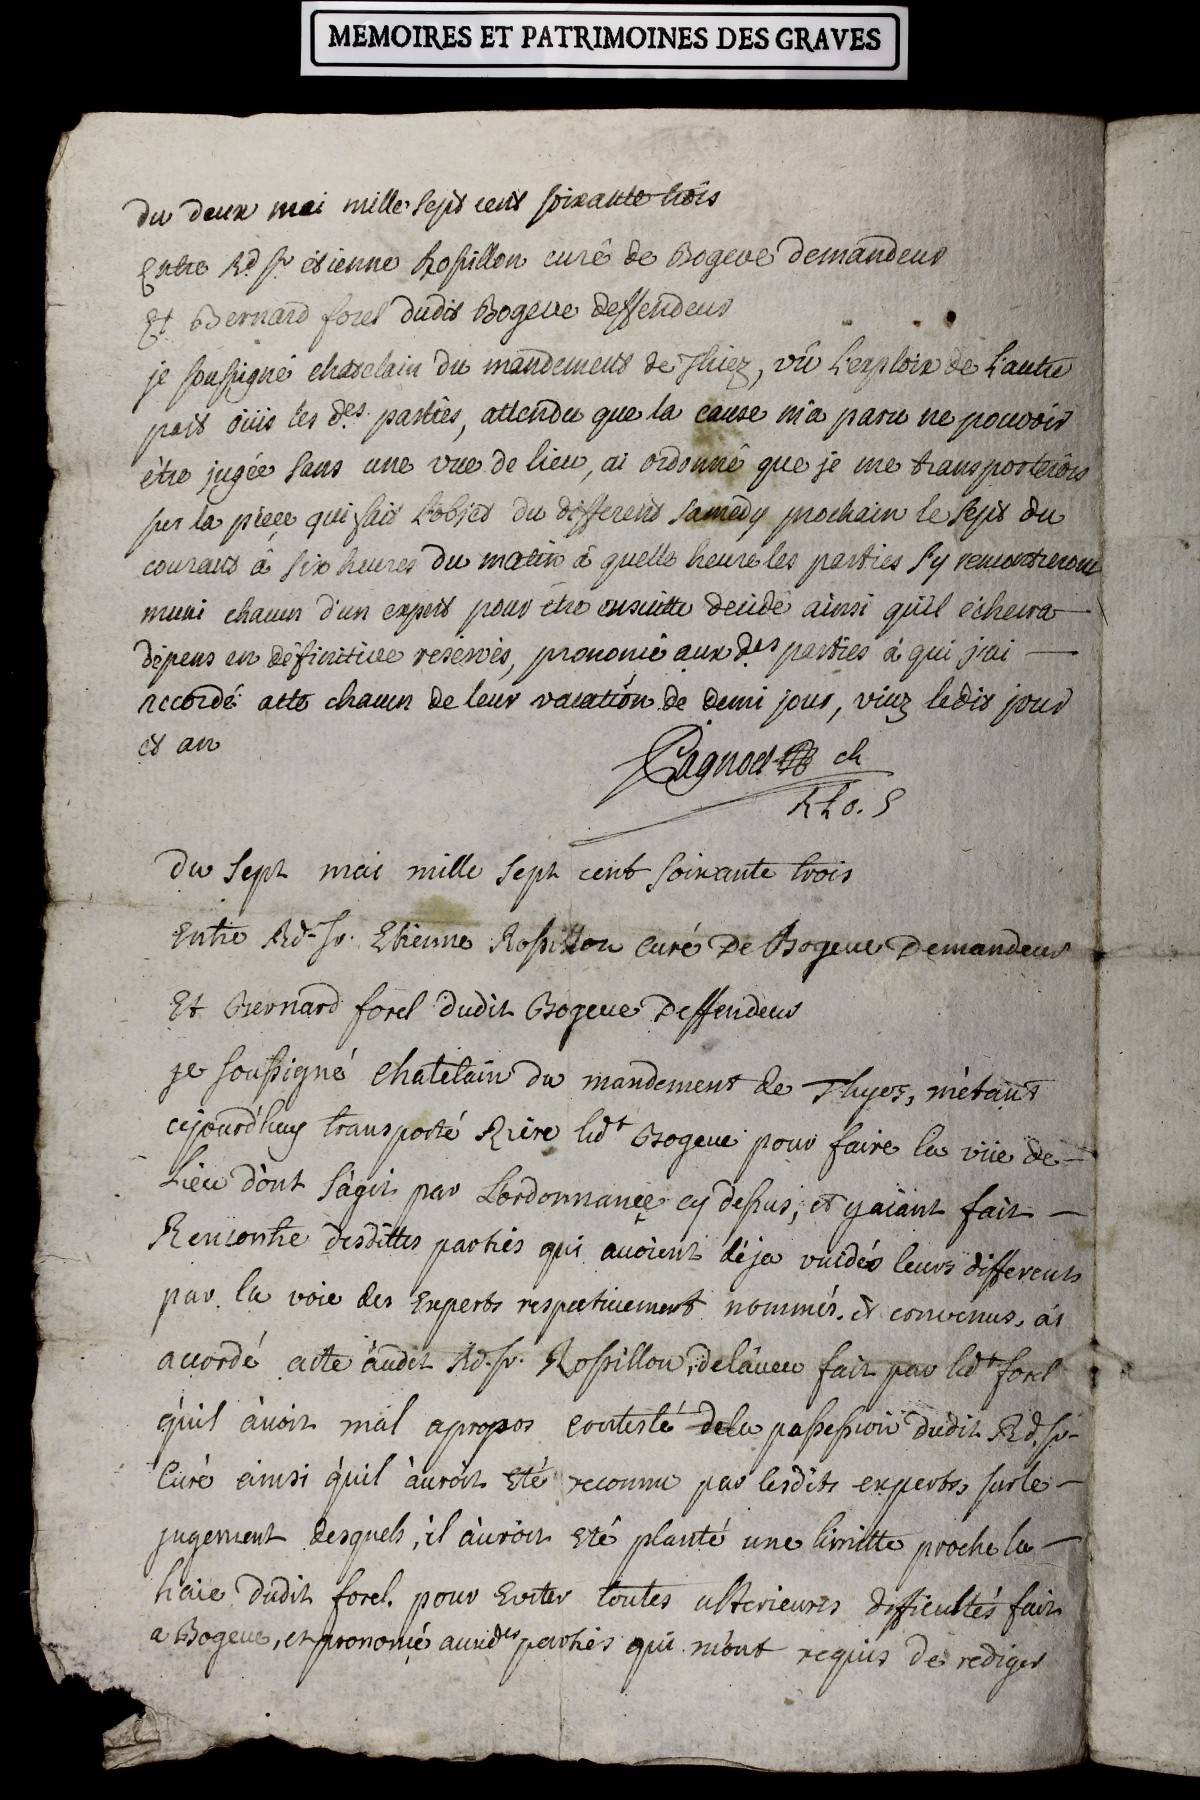 MEMOIRES ET PATRIMOINES DES GRAVES
du deux mai mille sept cent soixante trois
Entre Rd Sr étienne Rossillon curé de Bogeve demandeur
Et Bernard forel dudit Bogeve deffendeur
je soussigné chatelain du mandement de Thiez, vû L'exploix de L'autre
part oüis les des. parties, attendu que la cause m'a paru ne pouvoir
être jugée sans une vue de lieu, ai ordonné que je me transporterois
sur la piece qui fait L'objet du differend samedy prochain le sept du
courant â six heures du matin â quelle heure les parties s'y rencontreront
muni chacun d'un expert pour être ensuitte decidé ainsi quil écherra
dépens en définitive reservés, prononcé aux des parties â qui j'ai
accordé acte chacun de leur vacation de demi jour, viuz ledit jour
et an
Pagnod ch
du Sept mai mille Sept cent Soixante trois
Entre Rd. Sr. Etienne Rossillon Curé De Bogeve Demandeur
Et Bernard forel dudit Bogeve Deffendeur
je soussigné Chatelain du mandement de Thyez, m'étant
cejourd'huy transporté Riere ledt Bogeve pour faire la vüe de
Lieu dont s'àgit par Lordonnance cy dessus, et y aiant fait
Rencontre desdittes parties qui avoient déja vuidés leurs differents
par la voie des Experts respectivement nommés et convenus, ai
accordé acte àudit Rd. Sr. Rossillon, de làveu fait par ledt forel
qu'il àvoit mal apropos contesté de la possession dudit Rd. Sr.
Curé ainsi qu'il àuroit Eté reconnu par lesdits experts, sur le
jugement desquels, il àuroit Eté planté une limitte proche la
haie dudit forel. pour Eviter toutes ulterieures difficultés fait
a Bogeve, et prononcé aux des parties qui m'ont requis de rediger